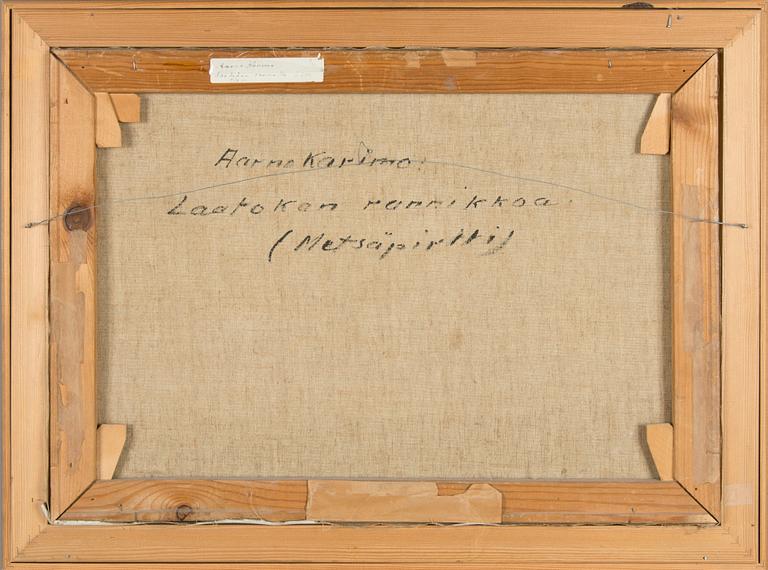 Aarne Karimo.
Laatokan rannikkoa.
(Metsäpirtti)